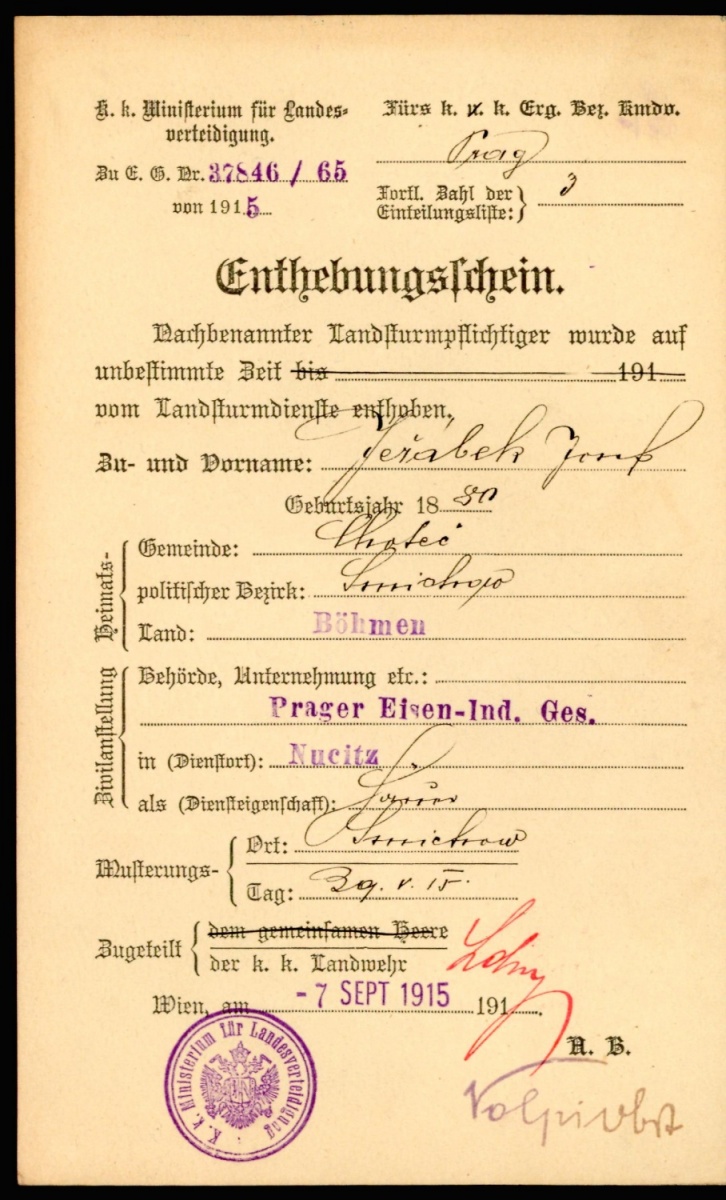 K. k. Ministerium für Landes-
verteidigung.
Zu E. G. Nr. 37846 / 65
von 1915
Fürs k. u. k. Erg. Bez. Kmdo.
Prag
Fortl. Zahl der
Einteilungsliste: 3
Enthebungsschein.
Nachbenannter Landsturmpflichtiger wurde auf
unbestimmte Zeit bis 191
vom Landsturmdienste enthoben.
Zu- und Vorname: Jeřábek Josef
Geburtsjahr 1880
Heimats-
Gemeinde: Choteč
politischer Bezirk: Smichow
Land: Böhmen
Zivilanstellung
Behörde, Unternehmung etc.:
Prager Eisen-Ind. Ges.
in (Dienstort): Nucitz
als (Diensteigenschaft):
Musterungs-
Ort: Smichow
Tag: 29. V. 15.
Zugeteilt
dem gemeinsamen Heere
der k. k. Landwehr
Wien, am - 7 SEPT 1915 191 .
A. B.
K. k. Ministerium für Landesverteidigung